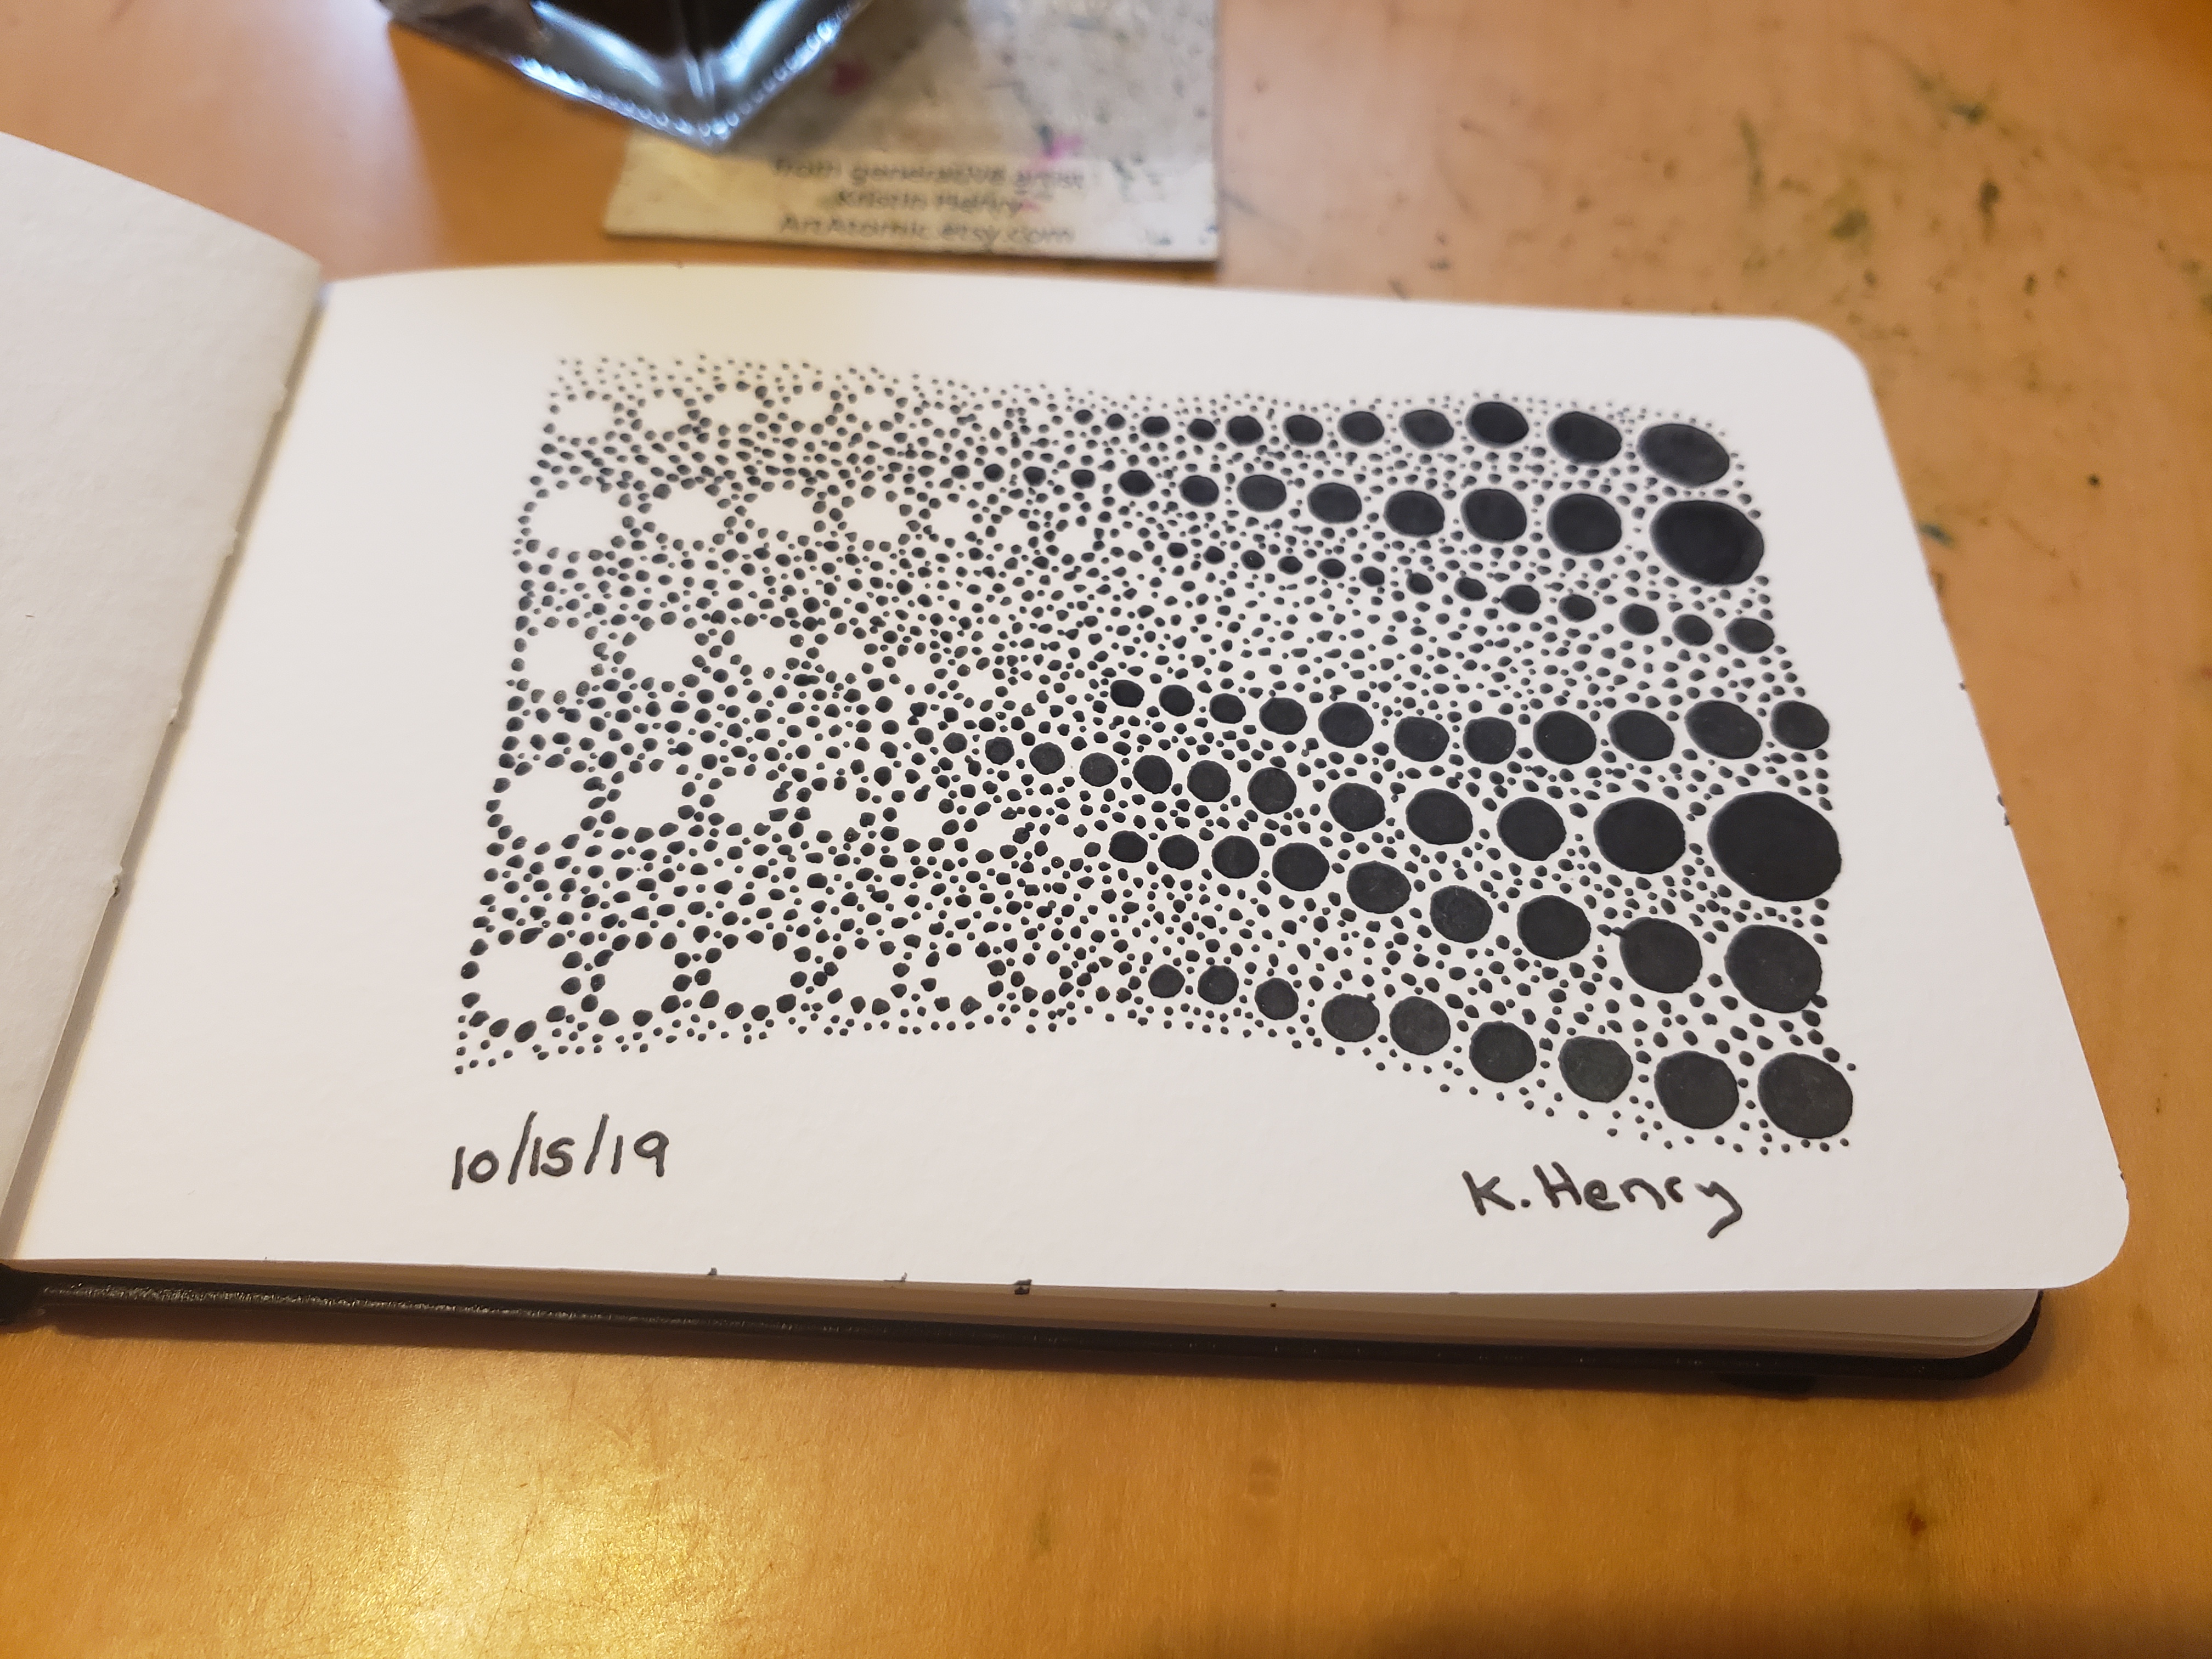 from generative artist
Kristin Henry
ArtAtomic.etsy.com
10/15/19
K. Henry